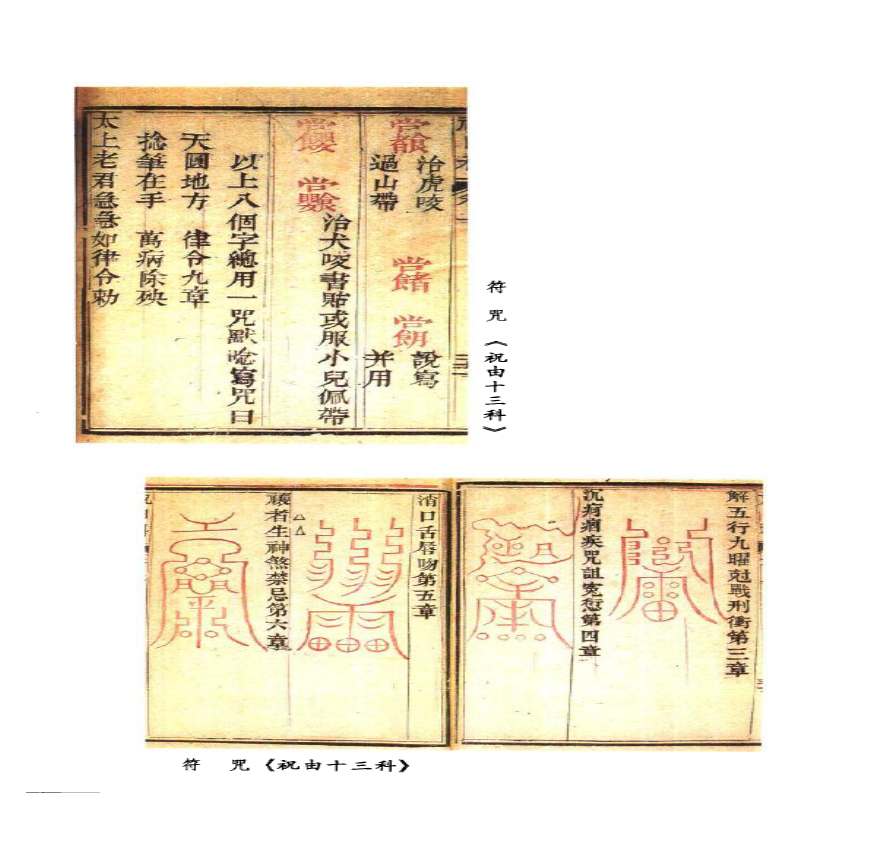 治虎咬
過山帶
說寫
并用
治犬咬書貼或服小兒佩帶
以上八個字總用一咒默唸寫咒曰
天圓地方 律令九章
捻筆在手 萬病除殃
太上老君急急如律令勅
符 咒《祝由十三科》
解五行九曜尅戰刑衝第三章
沉疴痼疾咒詛寃愆第四章
消口舌唇吻第五章
禳者生神煞禁忌第六章
符 咒《祝由十三科》